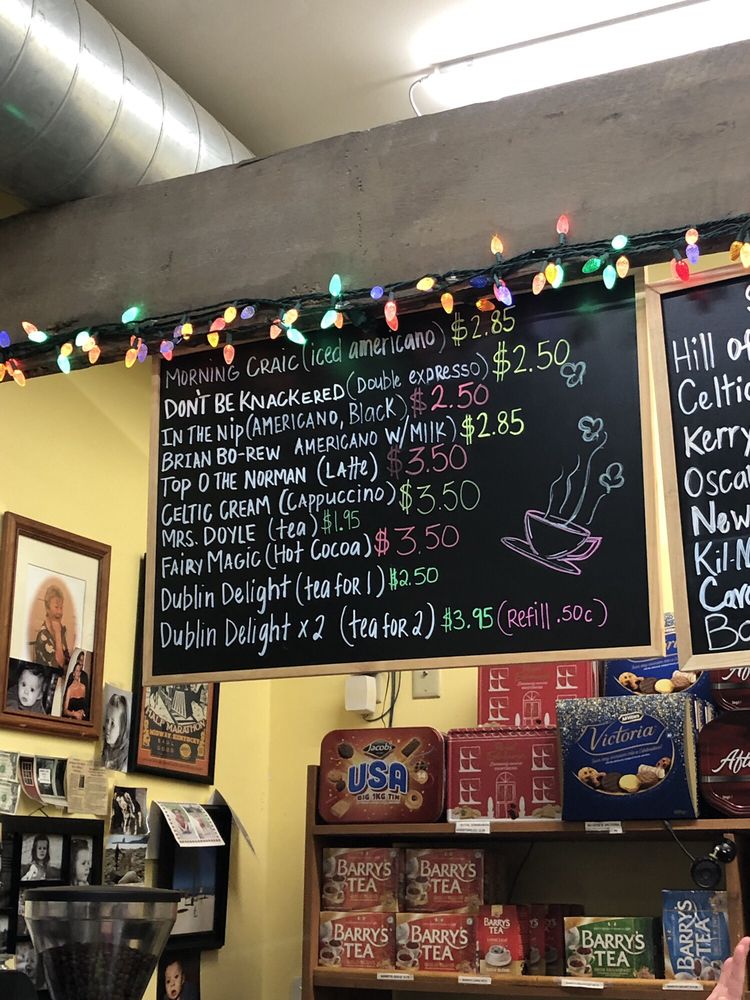 MORNING CRAIC (iced americano) $2.85
DON'T BE KNACKERED (Double expresso) $2.50
IN THE NIP (AMERICANO, Black) $2.50
BRIAN BO-REW AMERICANO W/MILK) $2.85
TOP O THE NORMAN (LATTE) $3.50
CELTIC CREAM (CAPPUCCINO) $3.50
MRS. DOYLE (tea) $1.95
FAIRY MAGIC (HOT COCOA) $3.50
Dublin Delight (tea for 1) $2.50
Dublin Delight x 2 (tea for 2) $3.95 (Refill .50c)
Hill of
Celtic
Kerry
Osca
New
Kil
Ba
HALF MARATHON
Jacob's
USA
BIG 1KG TIN
McVitie's
Victoria
Aft
BARRY'S TEA
BARRY'S TEA
BARRY'S TEA
BARRY'S TEA
BARRY'S TEA
BARRY'S TEA
BARRY'S TEA